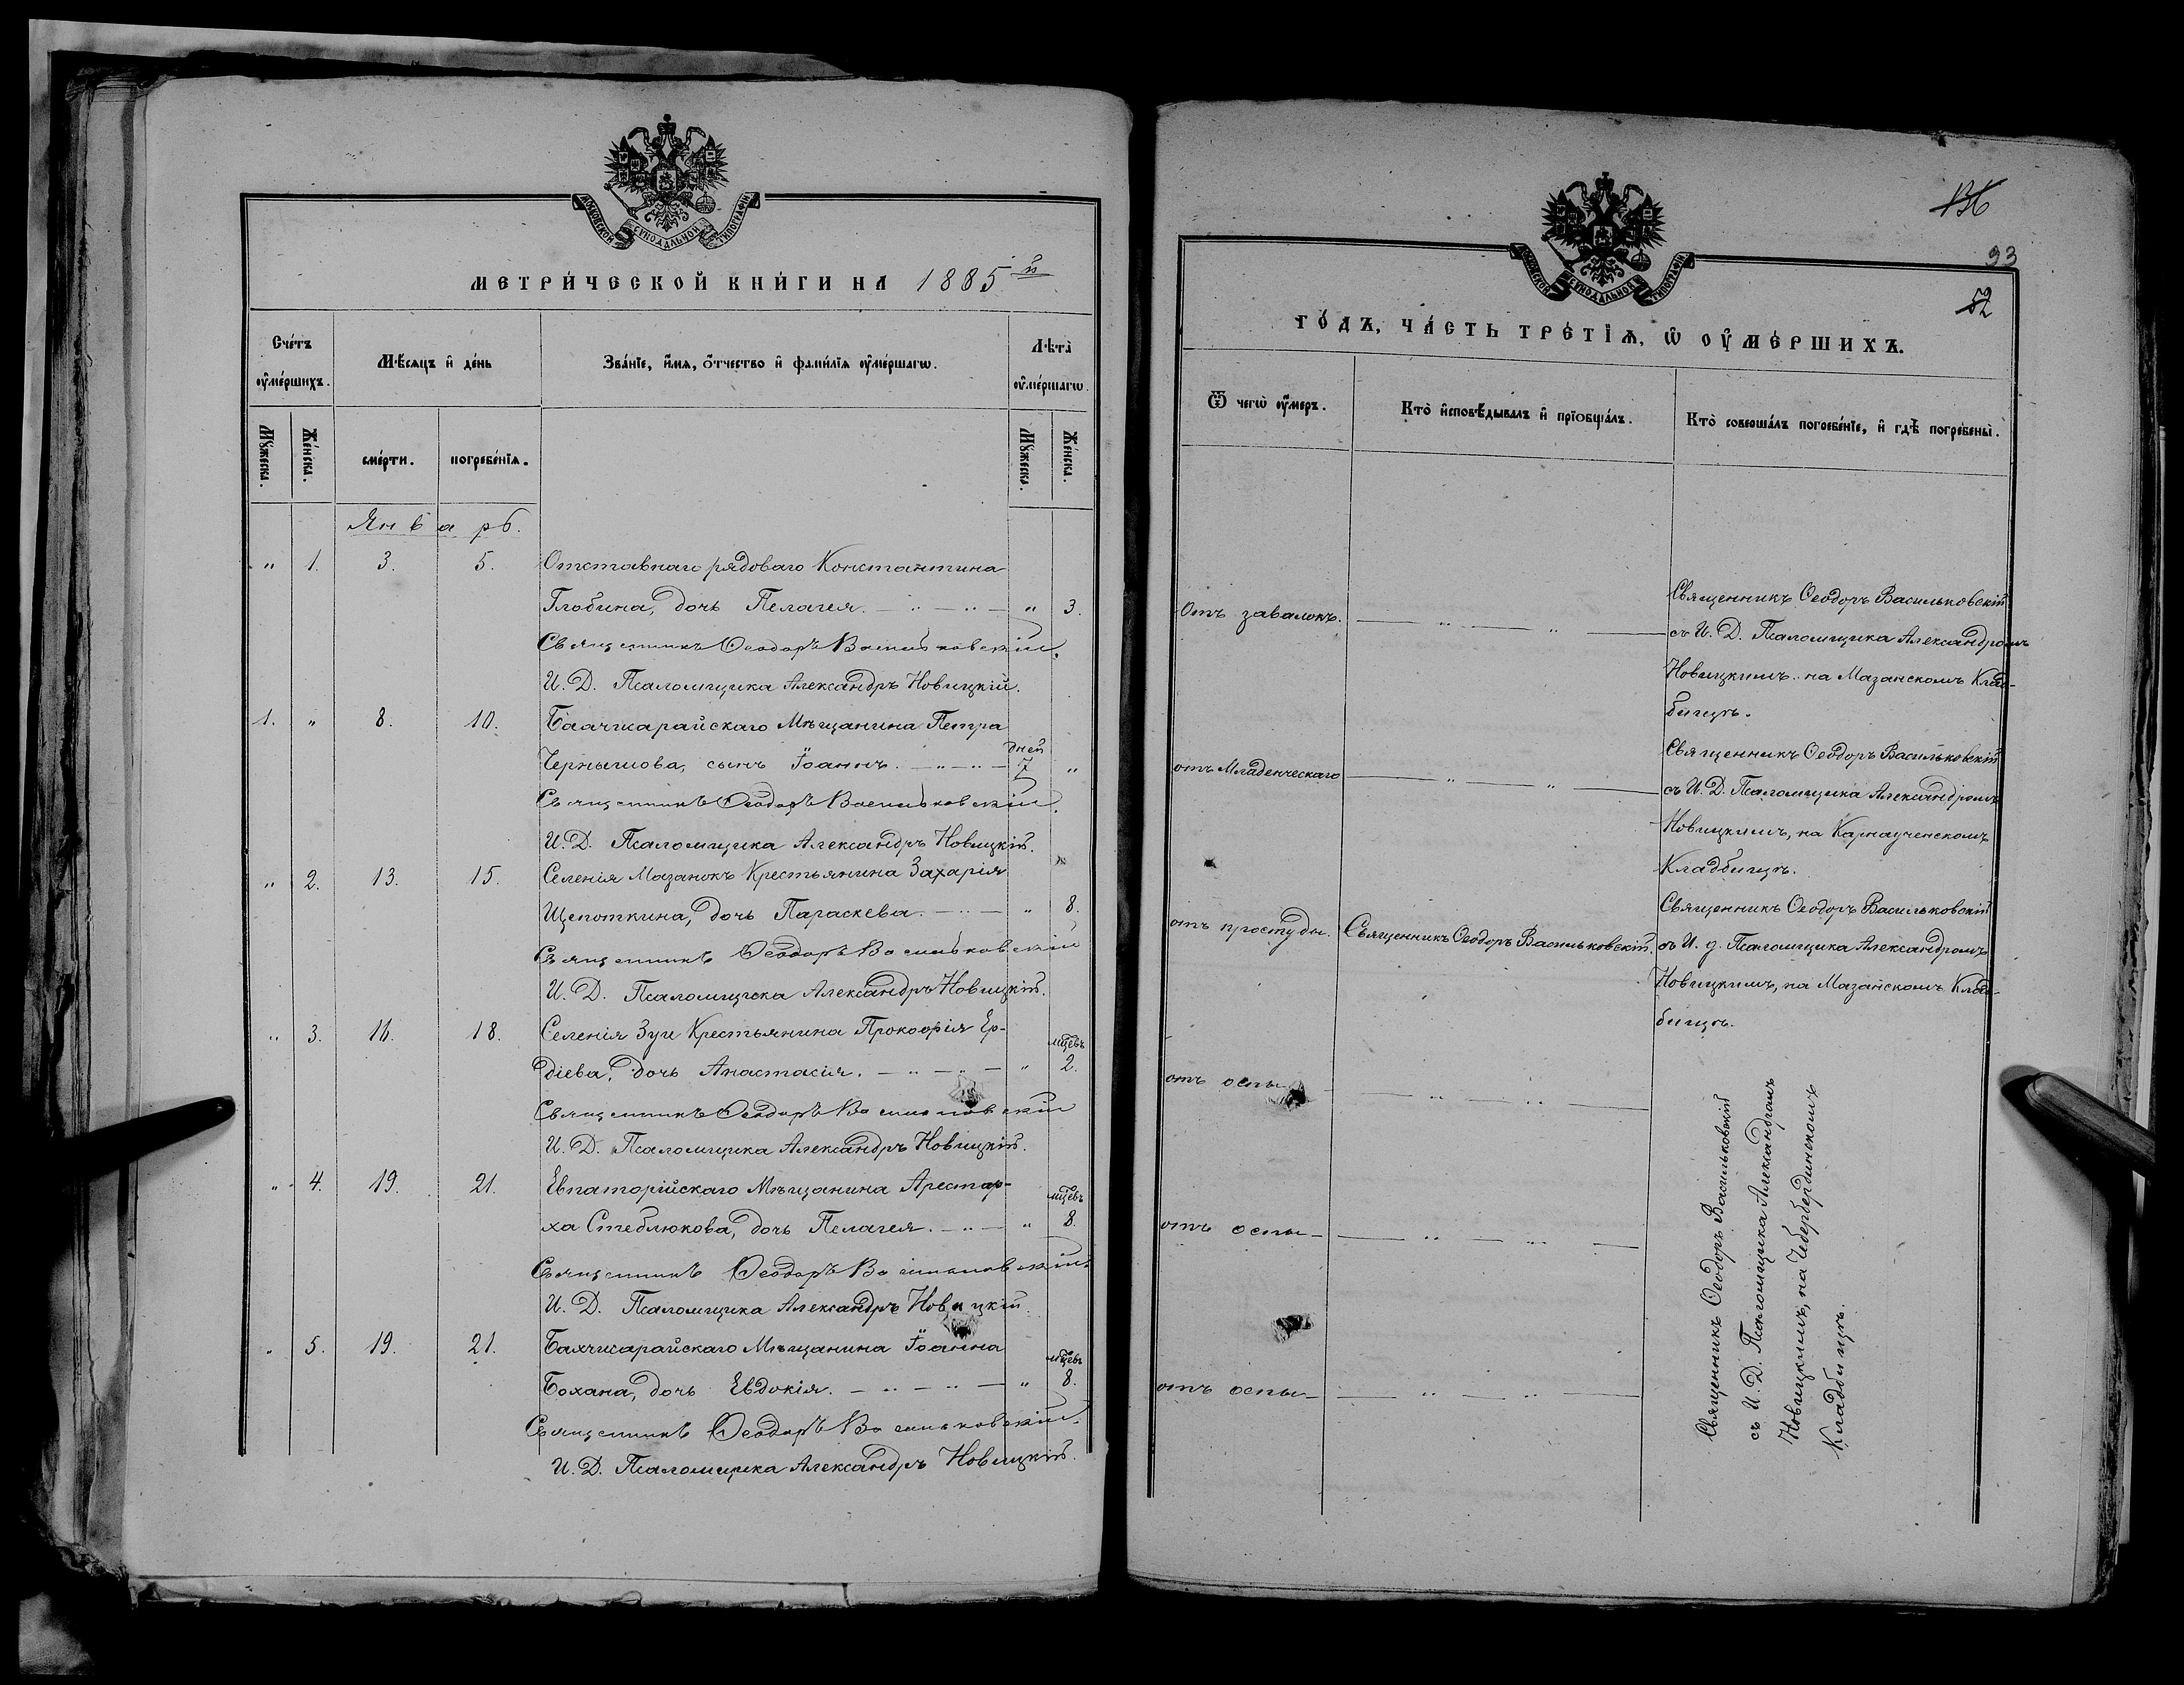 МОСКОВСКОЙ СѴНОДАЛЬНОЙ ТИПОГРАФІИ
МЕТРИ́ЧЕСКОЙ КНИ́ГИ НА 1885й
Сче́тъ оу҆ме́ршихъ.
Мѣ́сяцъ и҆ де́нь
Зва́нїе, и҆́мѧ, ѻ҆́тчество и҆ фами́лїѧ оу҆ме́ршагѡ.
Лѣта̀ оу҆ме́ршагѡ.
Мꙋ́жеска.
Же́нска.
сме́рти.
погребе́нїѧ.
Мꙋ́жеска.
Же́нска.
Январь.
" 1. 3. 5. Отставнаго рядоваго Константина
Глобина, дочь Пелагея. — " — " — " 3.
Священникъ Ѳеодоръ Васильковскій.
И. Д. Псаломщика Александръ Новицкій.
1. " 8. 10. Бахчисарайскаго Мѣщанина Петра
Чернышова, сынъ Іоаннъ. — " — " — дней 7 "
Священникъ Ѳеодоръ Васильковскій.
И. Д. Псаломщика Александръ Новицкій.
" 2. 13. 15. Селенія Мазанокъ Крестьянина Захарія
Щепоткина, дочь Параскева. — " — " 8.
Священникъ Ѳеодоръ Васильковскій
И. Д. Псаломщика Александръ Новицкій.
" 3. 16. 18. Селенія Зуи Крестьянина Прокофія Ер-
діева, дочь Анастасія. — " — " — " мцевъ 2.
Священникъ Ѳеодоръ Васильковскій
И. Д. Псаломщика Александръ Новицкій.
" 4. 19. 21. Евпаторійскаго Мѣщанина Арестар-
ха Стеблюкова, дочь Пелагея. — " — " мцевъ 8.
Священникъ Ѳеодоръ Васильковскій.
И. Д. Псаломщика Александръ Новицкій.
" 5. 19. 21. Бахчисарайскаго Мѣщанина Іоанна
Бохана, дочь Евдокія. — " — " — " мцевъ 8.
Священникъ Ѳеодоръ Васильковскій.
И. Д. Псаломщика Александръ Новицкій.
136
93
52
МОСКОВСКОЙ СѴНОДАЛЬНОЙ ТИПОГРАФІИ
ГО́ДЪ, ЧА́СТЬ ТРЕ́ТЇѦ, Ѡ҆ ОУ҆МЕ́РШИХЪ.
Ѿ чегѡ̀ оу҆́меръ.
Кто̀ и҆сповѣ́дывалъ и҆ прїѡбща́лъ.
Кто̀ соверша́лъ погребе́нїе, и҆ гдѣ̀ погребены̀.
Отъ завалокъ. — " — " —
Священникъ Ѳеодоръ Васильковскій
съ И. Д. Псаломщика Александромъ
Новицкимъ. на Мазанскомъ Клад-
бищѣ.
отъ Младенческаго — " — " —
Священникъ Ѳеодоръ Васильковскій
съ И. Д. Псаломщика Александромъ
Новицкимъ, на
Кладбищѣ.
отъ простуды. Священникъ Ѳеодоръ Васильковскій.
Священникъ Ѳеодоръ Васильковскій
съ И. д. Псаломщика Александромъ
Новицкимъ, на Мазанскомъ Клад-
бищѣ.
отъ оспы — " — " —
отъ оспы — " — " —
отъ оспы — " — " —
Священникъ Ѳеодоръ Васильковскій
съ И. Д. Псаломщика Александромъ
Новицкимъ, на
Кладбищѣ.